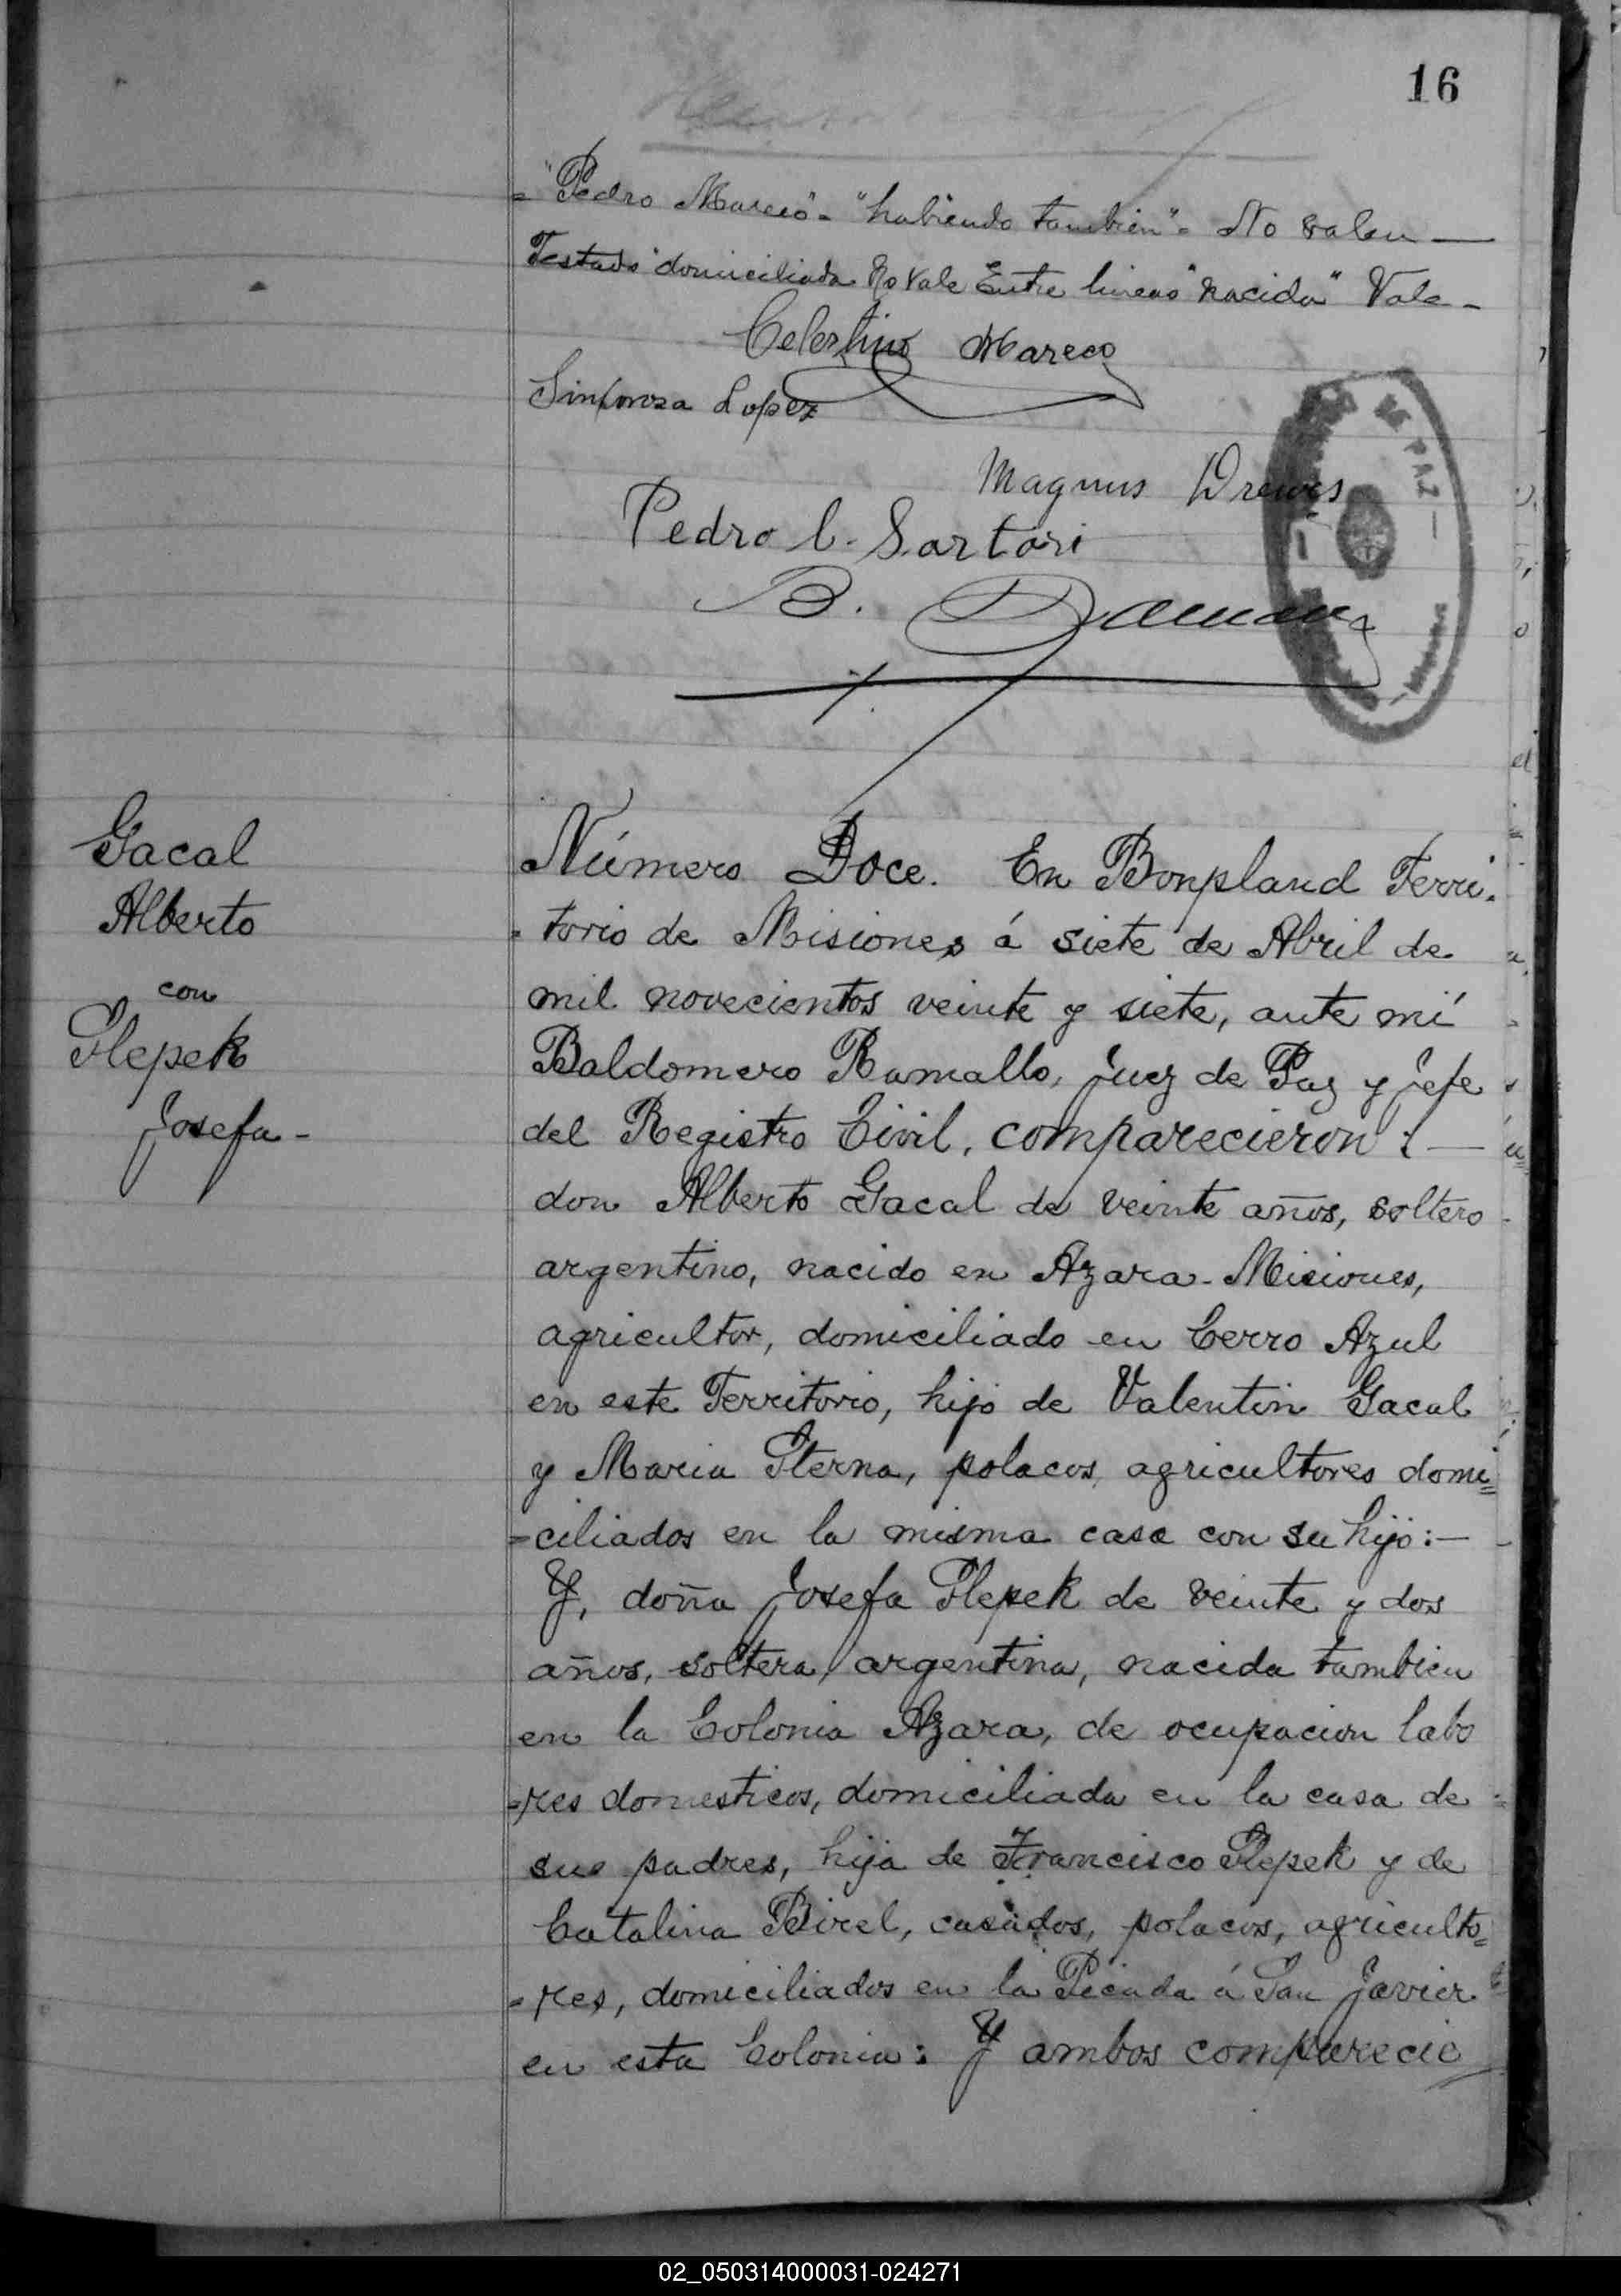 16
= "Pedro Mareco" = "habiendo tambien" = No valen —
Testado "domiciliada" No Vale Entre lineas "nacida" Vale -
Celestino Mareco
Sinforosa Lopez
Magnus Drewes
Pedro C. Sartori
B.
DE PAZ
Gacal
Alberto
con
Slepek
Josefa -
Número Doce. En Bonpland Terri-
torio de Misiones á siete de Abril de
mil novecientos veinte y siete, ante mí
Baldomero Ramallo, Juez de Paz y Jefe
del Registro Civil, comparecieron: —
don Alberto Gacal de veinte años, soltero
argentino, nacido en Azara - Misiones,
agricultor, domiciliado en Cerro Azul
en este Territorio, hijo de Valentin Gacal
y Maria Sterna, polacos, agricultores domi=
=ciliados en la misma casa con su hijo: —
Y, doña Josefa Slepek de veinte y dos
años, soltera, argentina, nacida tambien
en la Colonia Azara, de ocupacion labo
=res domesticos, domiciliada en la casa de
sus padres, hija de Francisco Slepek y de
Catalina Birel, casados, polacos, agriculto=
=res, domiciliados en la Picada á San Javier
en esta Colonia: Y ambos comparecie
02_050314000031-024271